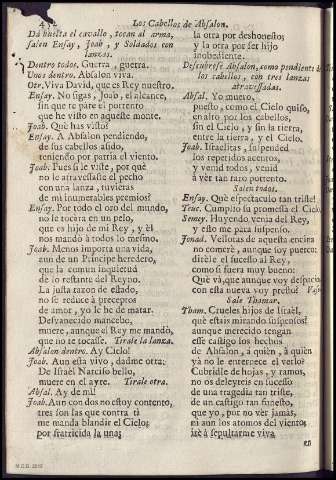 Los Cabellos de Absalon.
Dà buelta el cavallo, tocan al arma,
salen Ensay, Joab, y Soldados con
lanzas.
Dentro todos. Guerra, guerra.
Unos dentro. Absalon viva.
Otr. Viva David, que es Rey nuestro.
Ensay. No sigas, Joab, el alcance,
sin que te pare el portento
que he visto en aqueste monte.
Joab. Què has visto?
Ensay. A Absalon pendiendo,
de sus cabellos asido,
teniendo por patria el viento.
Joab. Pues si le viste, por què
no le atravesaste el pecho
con una lanza, tuvieras
de mi innumerables premios?
Ensay. Por todo el oro del mundo,
no le tocàra en un pelo,
que es hijo de mi Rey, y èl
nos mandò à todos lo mesmo.
Joab. Menos importa una vida,
aun de un Principe heredero,
que la comun inquietud
de lo restante del Reyno.
La justa razon de estado,
no se reduce à preceptos
de amor, yo le he de matar.
Desvanecido mancebo,
muere, aunque el Rey me mandò,
que no te tocasse. Tirale la lanza.
Absalon dentro. Ay Cielo!
Joab. Aun esta vivo, dadme otra:
De Israèl Narciso bello,
muere en el ayre. Tirale otra.
Absal. Ay de mi!
Joab. Aun con dos no estoy contento,
tres son las que contra tì
me manda blandir el Cielo:
por fratricida la una;
la otra por deshonesto;
y la otra por ser hijo
inobediente.
Descubrese Absalon, como pendiente de
los cabellos, con tres lanzas
atravessadas.
Absal. Yo muero,
puesto, como el Cielo quiso,
en alto por los cabellos,
sin el Cielo, y sin la tierra,
entre la tierra, y el Cielo.
Joab. Israelitas, suspended
los repetidos acentos,
y venid todos, venid
à ver tan raro portento.
Salen todos.
Ensay. Què espectaculo tan triste!
Teuc. Cumpliò su promessa el Cielo.
Semey. Huyendo venia del Rey,
y esto me para suspenso.
Jonad. Vellotas de aquesta encina
no comerè, aunque soy puerco:
dirèle el sucesso al Rey,
como si fuera muy bueno:
Què và, que aunque voy despacio,
con esta nueva voy presto? Vase
Sale Thamar.
Tham. Crueles hijos de Israèl,
què estais mirando suspensos?
aunque merecido tengan
esse castigo los hechos
de Absalon, à quièn, à quièn
yà no le enternece el verlo?
Cubridle de hojas, y ramos,
no os deleyteis en sucesso
de una tragedia tan triste,
de un castigo tan funesto,
que yo, por no vèr jamàs,
ni aun los atomos del viento,
irè à sepultarme viva